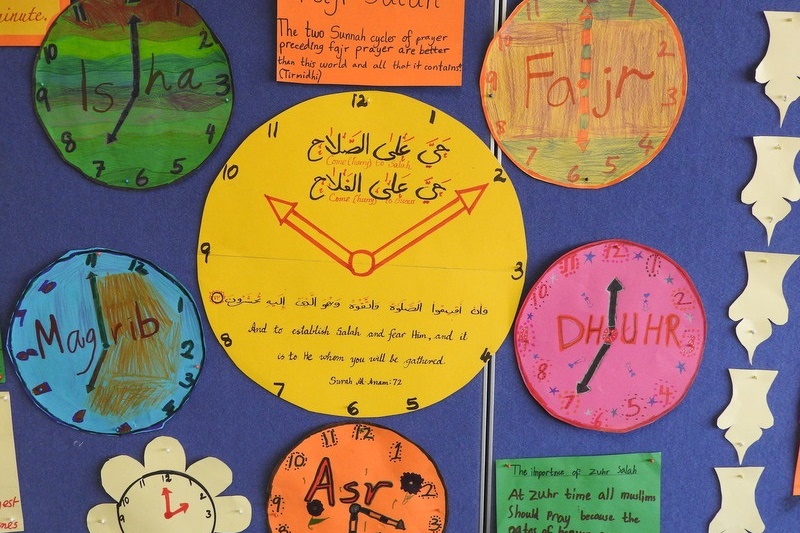 minute.
Fajr Salah
The two Sunnah cycles of prayer
preceding fajr prayer are better
than this world and all that it contains.
(Tirmidhi)
12
2
3
4
5
6
7
8
9
Isha
11
2
3
4
5
6
7
8
9
Fajr
12
1
2
3
4
5
6
7
8
9
10
11
حَيَّ عَلَى الصَّلاح
Come (hurry) to Salah
حَيَّ عَلَى الفَلاح
Come (hurry) to
وَأَنْ أَقِيمُوا الصَّلَوةَ وَاتَّقُوهُ وَهُوَ الَّذِى إِلَيْهِ تُحْشَرُونَ
And to establish Salah and fear Him, and it
is to He whom you will be gathered.
Surah Al-Anam:72
11
12
1
2
3
4
5
6
Magrib
10
11
12
1
2
3
4
5
6
7
8
DHUHR
10
11
12
1
2
3
Asr
The importance of Zuhr Salah
At Zuhr time all muslim
Should pray because the
gates of